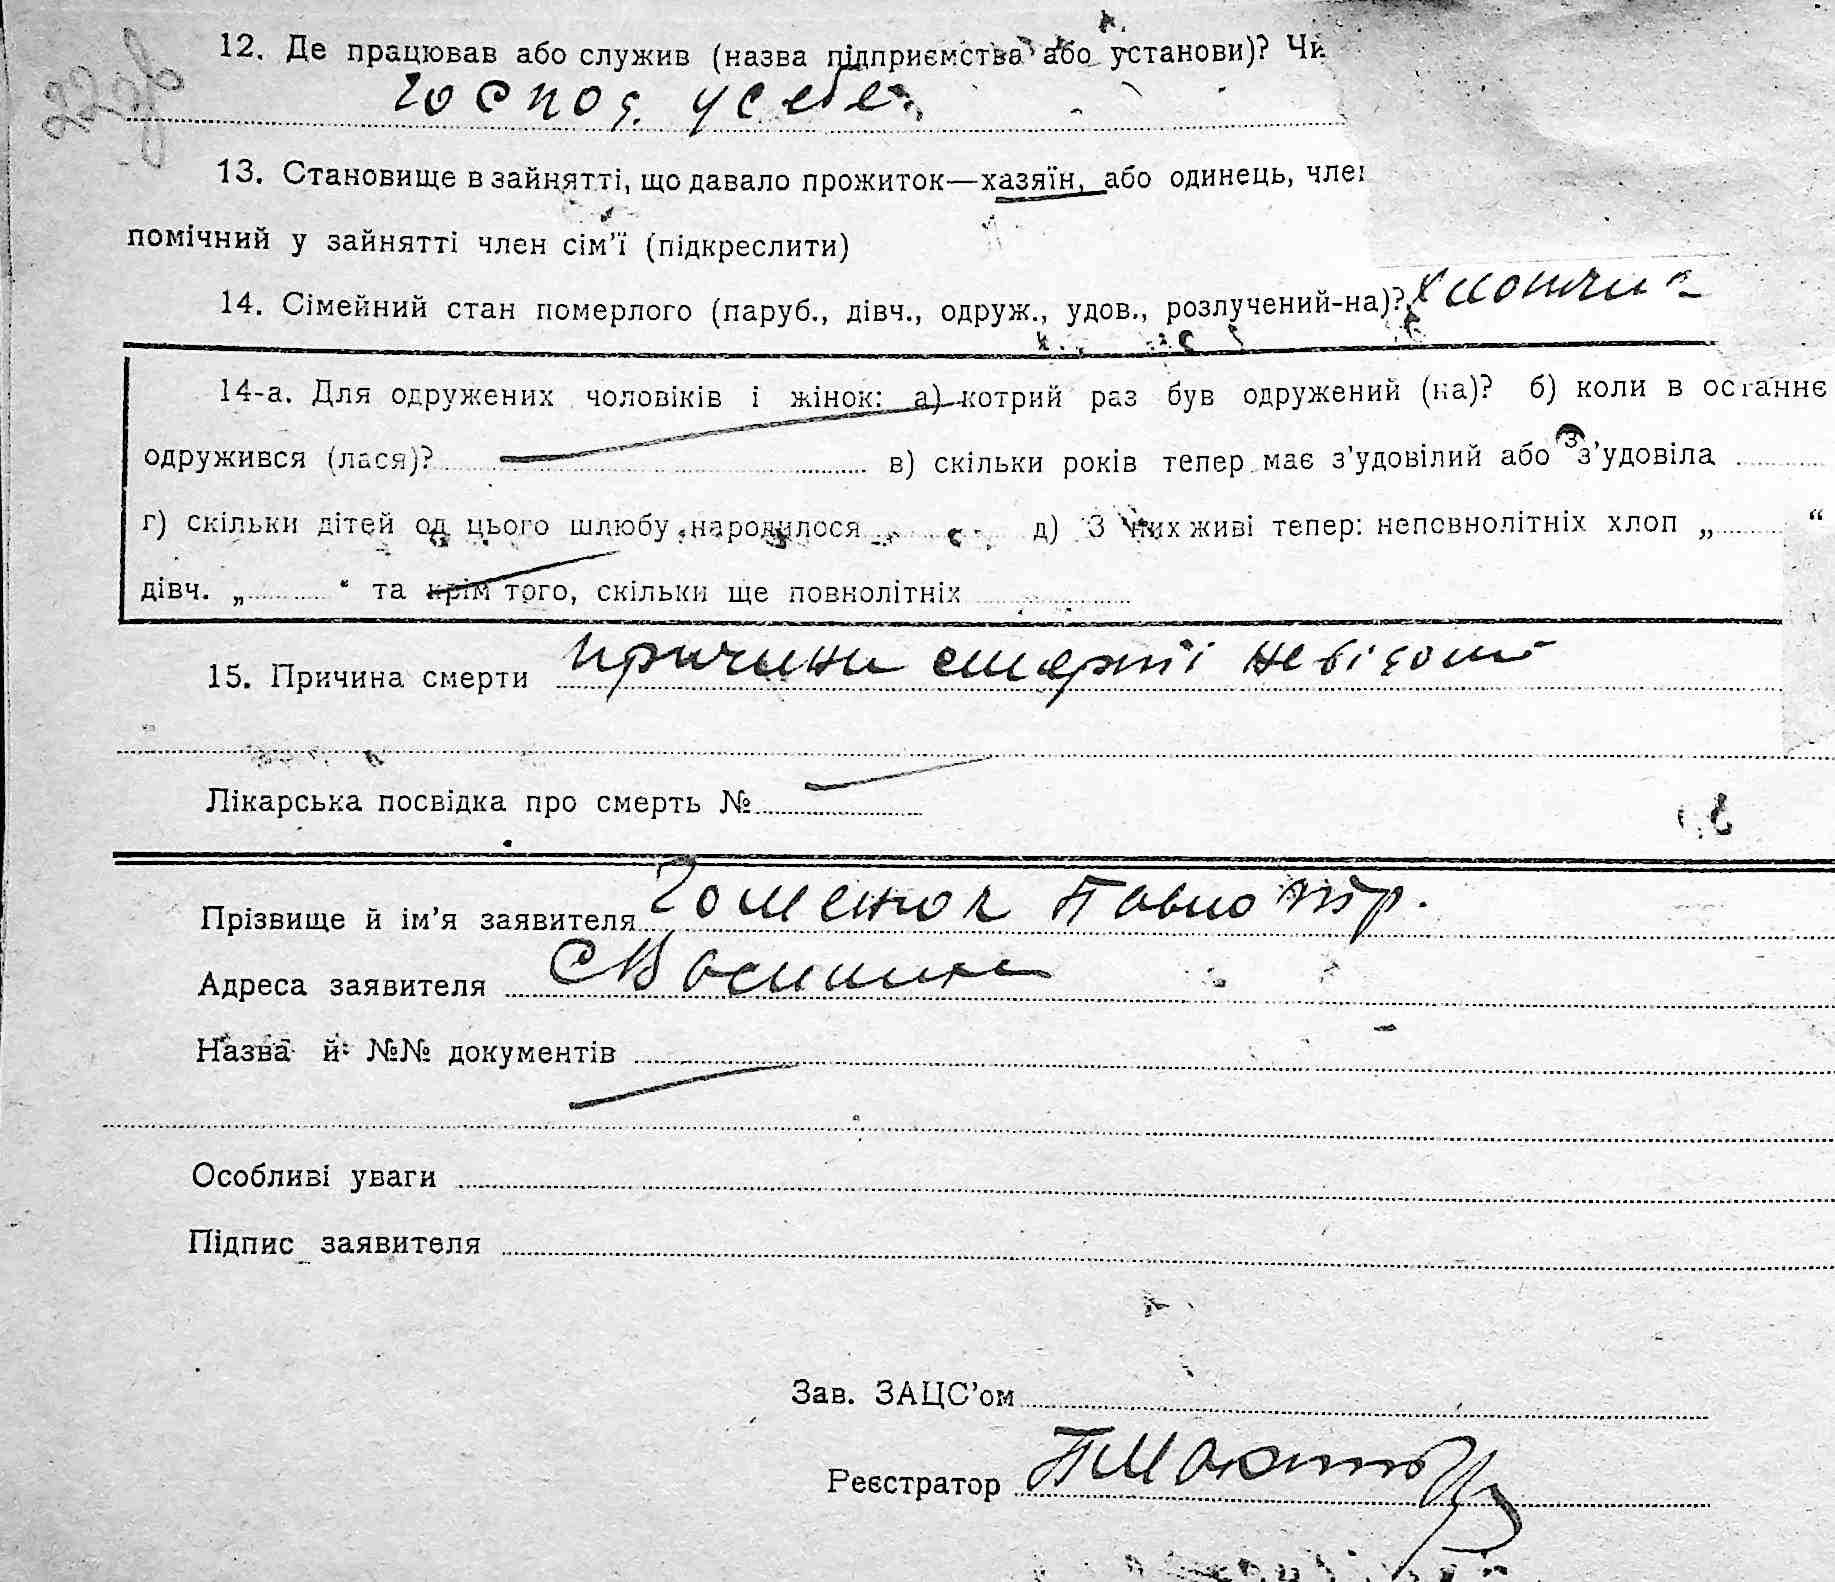 12. Де працював або служив (назва підприємства або установи)? Чи
господ. у себе
13. Становище в зайнятті, що давало прожиток—хазяїн, або одинець, член
помічний у зайнятті член сім’ї (підкреслити)
14. Сімейний стан померлого (паруб., дівч., одруж., удов., розлучений-на)? хлопчик
14-а. Для одружених чоловіків і жінок: а) котрий раз був одружений (на)? б) коли в останнє
одружився (лася)? в) скільки років тепер має з’удовілий або з’удовіла
г) скільки дітей од цього шлюбу народилося д) З них живі тепер: неповнолітніх хлоп „ “
дівч. „ “ та крім того, скільки ще повнолітніх
15. Причина смерти причини смерті невідомі
Лікарська посвідка про смерть №
Прізвище й ім’я заявителя Гоменюк Павло
Адреса заявителя
Назва й №№ документів
Особливі уваги
Підпис заявителя
Зав. ЗАЦС’ом
Реєстратор